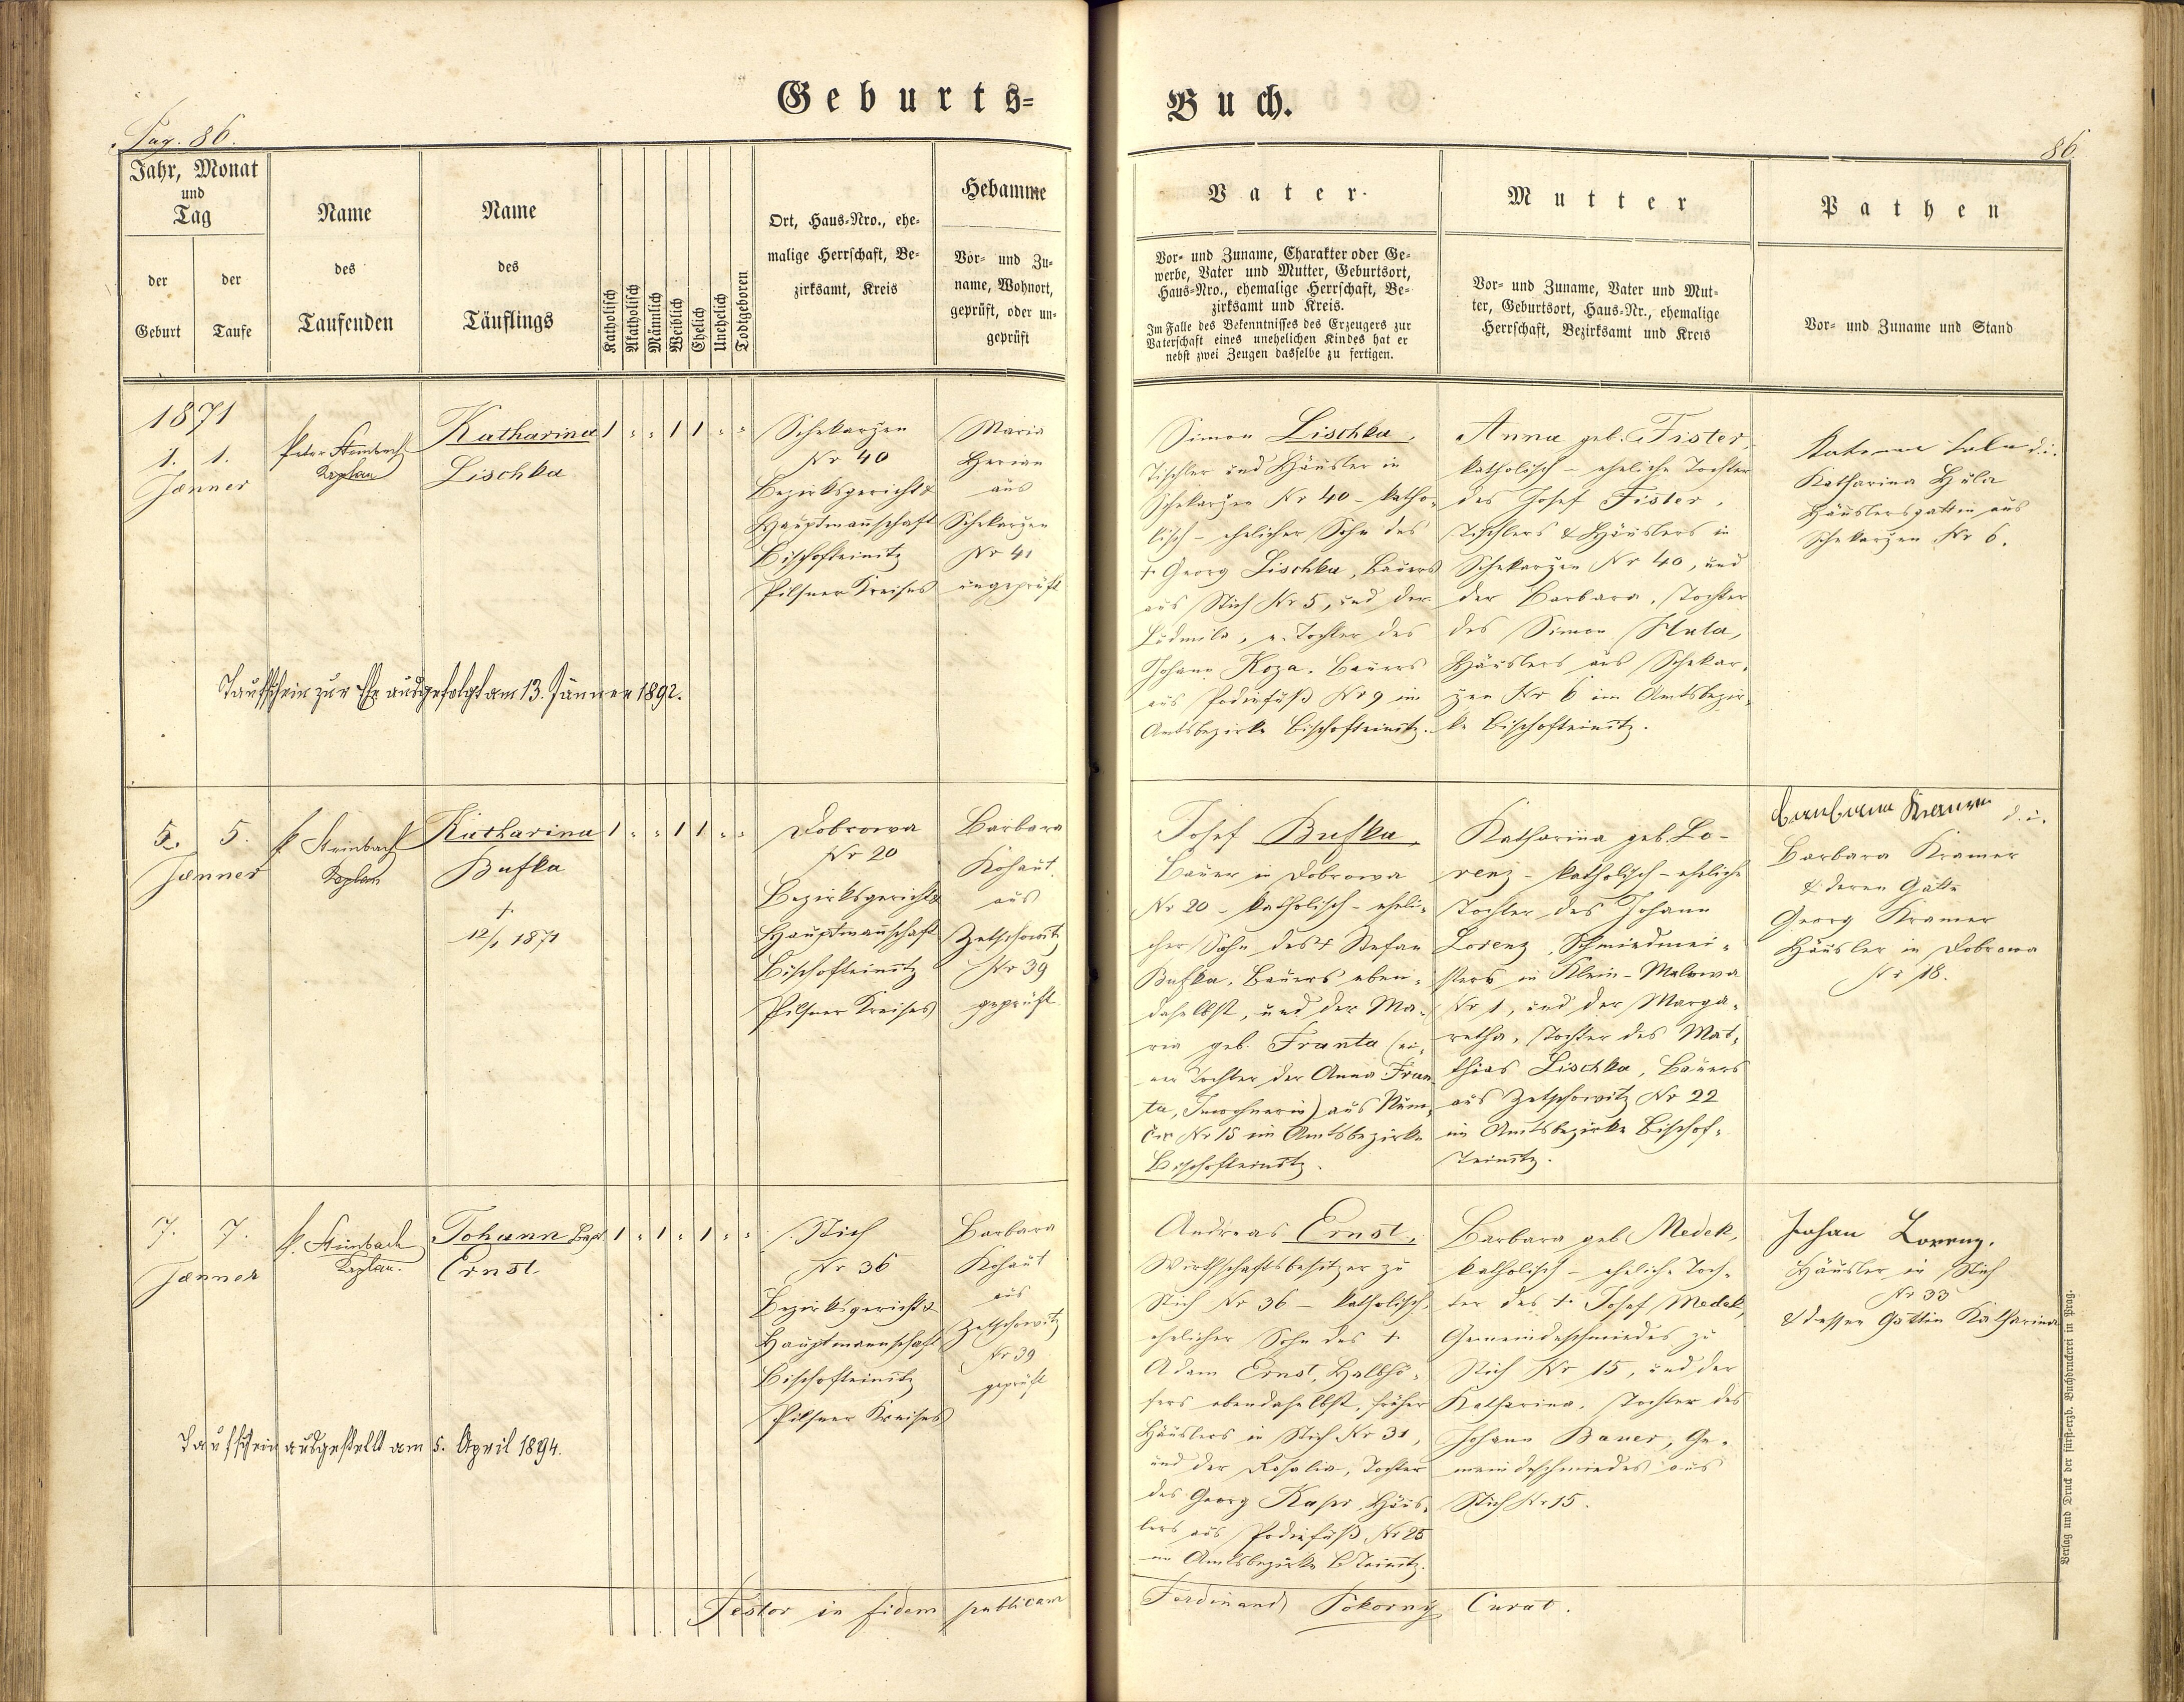 Geburts-
Buch.
Pag. 86.
86.
Jahr, Monat
und
Tag
der
Geburt
der
Taufe
Name
des
Taufenden
Name
des
Täuflings
Katholisch
Akatholisch
Männlich
Weiblich
Ehelich
Unehelich
Todtgeboren
Ort, Haus-Nro., ehe-
malige Herrschaft, Be-
zirksamt, Kreis
Hebamme
Vor- und Zu-
name, Wohnort,
geprüft, oder un-
geprüft
Vater
Vor- und Zuname, Charakter oder Ge-
werbe, Vater und Mutter, Geburtsort,
Haus-Nro., ehemalige Herrschaft, Be-
zirksamt und Kreis.
Im Falle des Bekenntnisses des Erzeugers zur
Vaterschaft eines unehelichen Kindes hat er
nebst zwei Zeugen dasselbe zu fertigen.
Mutter
Vor- und Zuname, Vater und Mut-
ter, Geburtsort, Haus-Nr., ehemalige
Herrschaft, Bezirksamt und Kreis
Pathen
Vor- und Zuname und Stand
1871
1. 1.
Jänner
Peter Steinbach
Kaplan
Katharina
Lischka
1 " " 1 1 " "
Schekarzen
Nr 40
Bezirksgericht &
Hauptmannschaft
Bischofteinitz
Pilsner Kreises
Maria
aus
Schekarzen
Nr 41
ungeprüft
Simon Lischka,
Tischler und Häusler in
Schekarzen Nr 40 – katho-
lisch – ehelicher Sohn des
† Georg Lischka, Bauers
aus Stich Nr 5, und der
Ludmila, e. Tochter des
Johann Koza, Bauers
aus Podiefuß Nr 9 im
Amtsbezirke Bischofteinitz.
Anna geb. Fister,
katholisch – eheliche Tochter
des Josef Fister,
Tischlers & Häuslers in
Schekarzen Nr 40, und
der Barbara, Tochter
des Simon Hula,
Häuslers aus Schekar-
zen Nr 6 im Amtsbezir-
ke Bischofteinitz.
d. i.
Katharina Hula
Häuslersgattin aus
Schekarzen Nr 6.
Taufschein zur Ehe ausgefolgt am 13. Jänner 1892.
5. 5.
Jänner
P. Steinbach
Kaplan
Katharina
Bufka
†
12/1 1871
1 " " 1 1 " "
Dobrowa
Nr 20
Bezirksgericht &
Hauptmannschaft
Bischofteinitz
Pilsner Kreises
Barbara
Kohaut
aus
Zetschowitz
Nr 39
geprüft
Josef Bufka,
Bauer in Dobrowa
Nr 20 – katholisch – eheli-
cher Sohn des † Stefan
Bufka, Bauers eben-
daselbst, und der Ma-
ria geb. Franta (ei-
ner Tochter der Anna Fran-
ta, Inwohnerin) aus
Nr 15 im Amtsbezirke
Bischofteinitz.
Katharina geb. Lo-
renz – katholisch – eheliche
Tochter des Johann
Lorenz, Schmiedmei-
sters in Klein-Malowa
Nr 1, und der Marga-
retha, Tochter des Mat-
thias Lischka, Bauers
aus Zetschowitz Nr 22
im Amtsbezirke Bischof-
teinitz.
Barbara Kramer d. i.
Barbara Kramer
& deren Gatte
Georg Kramer
Häusler in Dobrowa
Nr 18.
7. 7.
Jänner
P. Steinbach
Kaplan.
Johann Bapt.
Ernst.
1 " 1 " 1 " "
Stich
Nr 36
Bezirksgericht &
Hauptmannschaft
Bischofteinitz
Pilsner Kreises
Barbara
Kohaut
aus
Zetschowitz
Nr 39
geprüft
Andreas Ernst,
Wirthschaftsbesitzer zu
Stich Nr 36 – katholisch,
ehelicher Sohn des †
Adam Ernst, Halbhö-
fers ebendaselbst, früher
Häuslers in Stich Nr 31,
und der Rosalia, Tochter
des Georg Kaser, Häus-
lers aus Podiefuß, Nr 25
im Amtsbezirke B Teinitz.
Barbara geb. Medek,
katholisch – eheliche Toch-
ter des † Josef Medek,
Gemeindeschmiedes zu
Stich Nr 15, und der
Katharina, Tochter des
Johann Bauer, Ge-
meindeschmiedes aus
Stich Nr 15.
Johan Lorenz.
Häusler in Stich
Nr 33
& dessen Gattin Katharina
Taufschein ausgestellt am 5. April 1894.
Testor in fidem publicam
Ferdinand Pokorny Curat.
Verlag und Druck der fürst-erzb. Buchdruckerei in Prag.